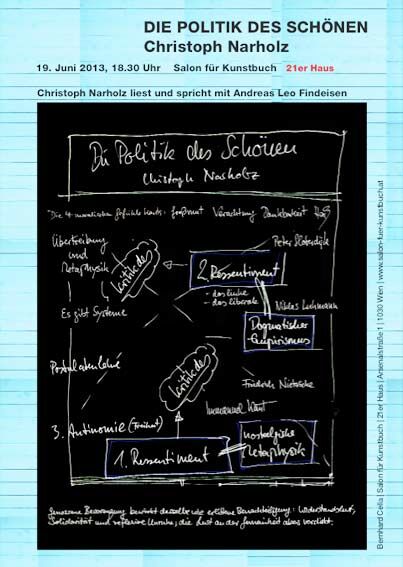 DIE POLITIK DES SCHÖNEN
Christoph Narholz
19. Juni 2013, 18.30 Uhr Salon für Kunstbuch 21er Haus
Christoph Narholz liest und spricht mit Andreas Leo Findeisen
Die Politik des Schönen
Christoph Narholz
Die 4 moralischen Gefühle Kants: Verachtung Dankbarkeit Haß
Peter Sloterdijk
Übertreibung
und
Metaphysik
Kritik des
2. Ressentiment
- das linke
- das liberale
Niklas Luhmann
Es gibt Systeme
Dogmatischer
Empirismus
Postulatenlehre
Kritik des
Friedrich Nietzsche
Immanuel Kant
3. Antinomie (Freiheit)
1. Ressentiment
nostalgische
Metaphysik
Solidarität und reflexive Unruhe; die Lust an der
Bernhard Cella | Salon für Kunstbuch | 21er Haus | Arsenalstraße 1 | 1030 Wien | www.salon-fuer-kunstbuch.at